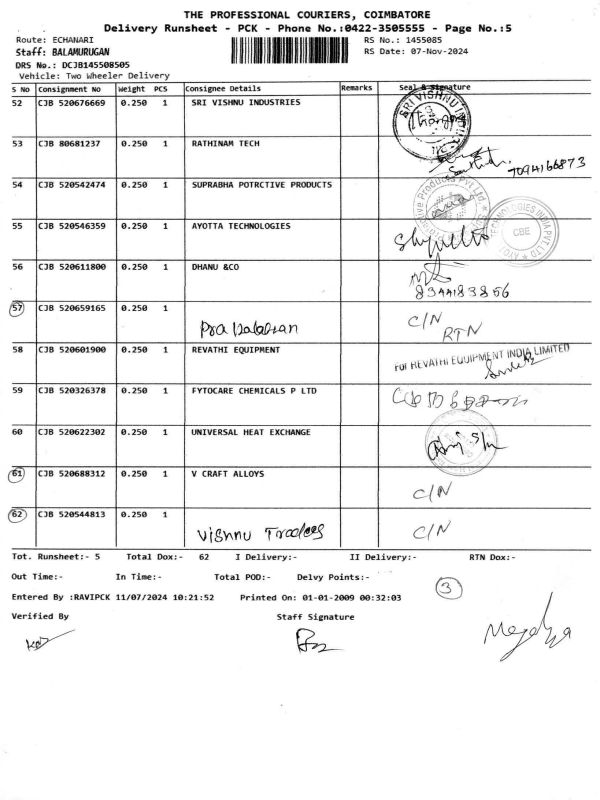 THE PROFESSIONAL COURIERS, COIMBATORE
Delivery Runsheet - PCK - Phone No.:0422-3505555 - Page No.:5
Route: ECHANARI RS No.: 1455085
Staff: BALAMURUGAN RS Date: 07-Nov-2024
DRS No.: DCJB145508505
Vehicle: Two Wheeler Delivery
S No Consignment No Weight PCS Consignee Details Remarks Seal & Signature
52 CJB 520676669 0.250 1 SRI VISHNU INDUSTRIES
SRI VISHNU
53 CJB 80681237 0.250 1 RATHINAM TECH
7094166873
54 CJB 520542474 0.250 1 SUPRABHA POTRCTIVE PRODUCTS
55 CJB 520546359 0.250 1 AYOTTA TECHNOLOGIES
TECHNOLOGIES INDIA PVT LTD CBE
56 CJB 520611800 0.250 1 DHANU &CO
8344183856
57 CJB 520659165 0.250 1 C/N
RTN
58 CJB 520601900 0.250 1 REVATHI EQUIPMENT For REVATHI EQUIPMENT INDIA LIMITED
59 CJB 520326378 0.250 1 FYTOCARE CHEMICALS P LTD
60 CJB 520622302 0.250 1 UNIVERSAL HEAT EXCHANGE
61 CJB 520688312 0.250 1 V CRAFT ALLOYS C/N
62 CJB 520544813 0.250 1 Vishnu Traders C/N
Tot. Runsheet:- 5 Total Dox:- 62 I Delivery:- II Delivery:- RTN Dox:-
Out Time:- In Time:- Total POD:- Delvy Points:- 3
Entered By :RAVIPCK 11/07/2024 10:21:52 Printed On: 01-01-2009 00:32:03
Verified By Staff Signature